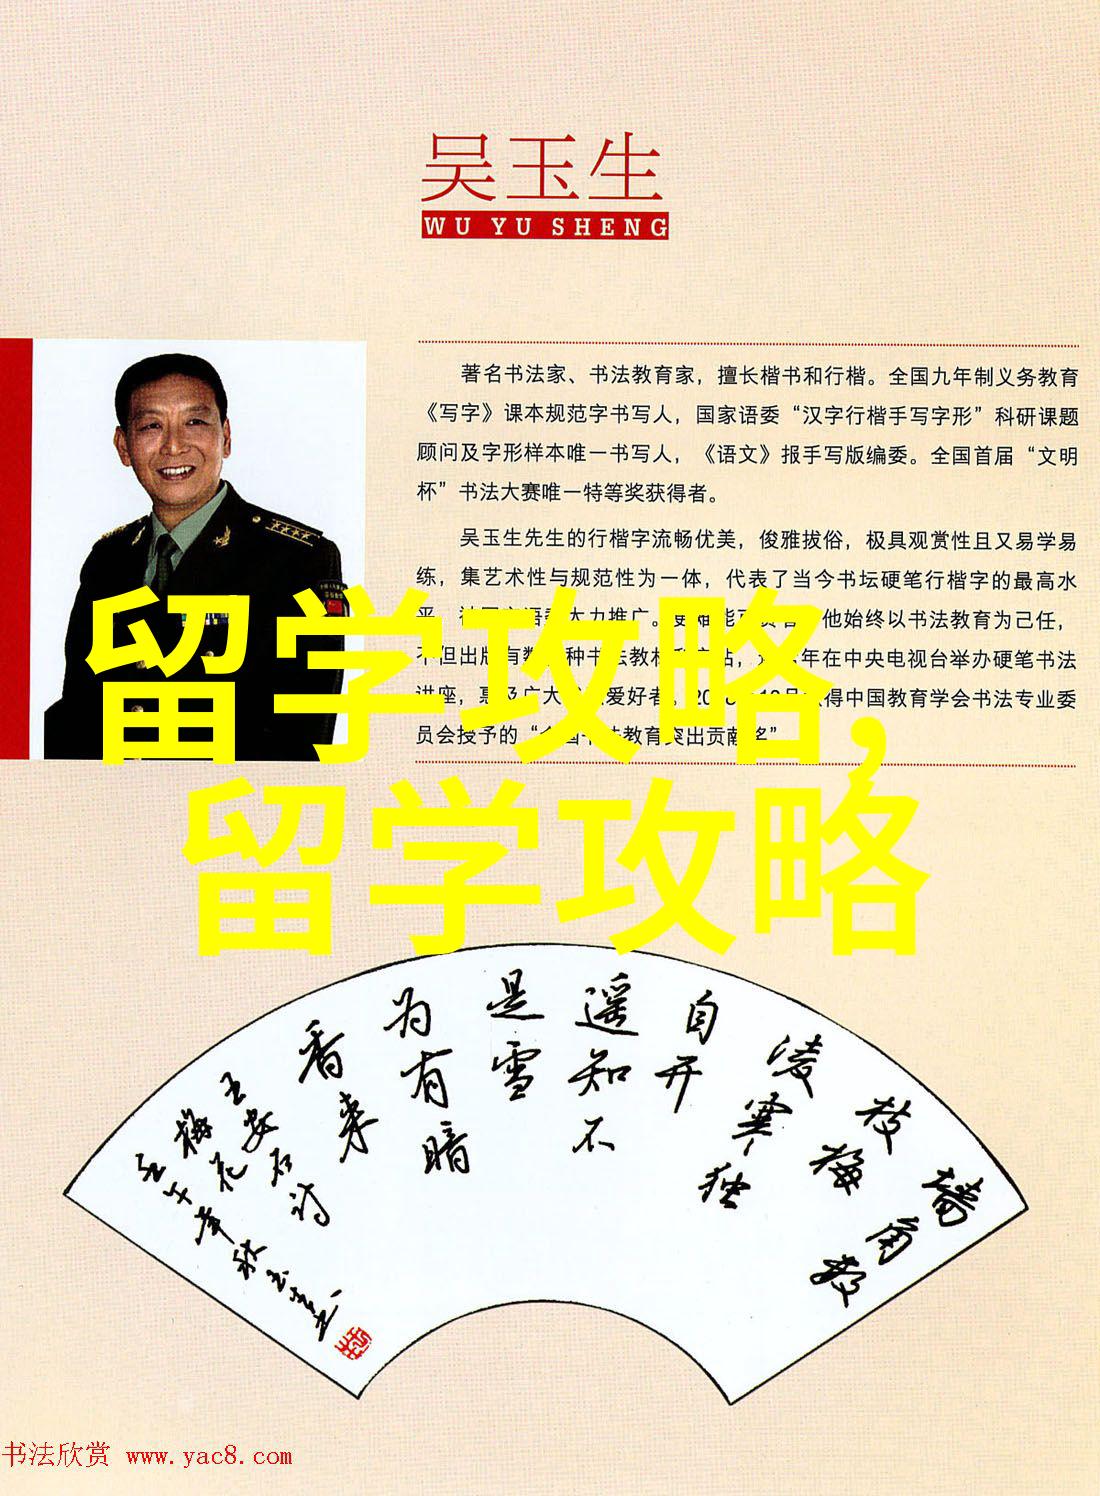 吴玉生
WU YU SHENG
著名书法家、书法教育家，擅长楷书和行楷。全国九年制义务教育
《写字》课本规范字书写人，国家语委“汉字行楷手写字形”科研课题
顾问及字形样本唯一书写人，《语文》报手写版编委。全国首届“文明
杯”书法大赛唯一特等奖获得者。
吴玉生先生的行楷字流畅优美，俊雅拔俗，极具观赏性且又易学易
练，集艺术性与规范性为一体，代表了当今书坛硬笔行楷字的最高水
大力推广。他始终以书法教育为己任，
不但出版有数种书法教材年在中央电视台举办硬笔书法
讲座，惠及广大爱好者。获得中国教育学会书法专业委
员会授予的“全国书法教育突出贡献奖”
留学攻略,
留学攻略
墙角数
枝梅
凌寒独
自开
遥知不
是雪
为有暗
香来
王安石诗
梅花
壬午年秋玉生书
书法欣赏 www.yac8.com